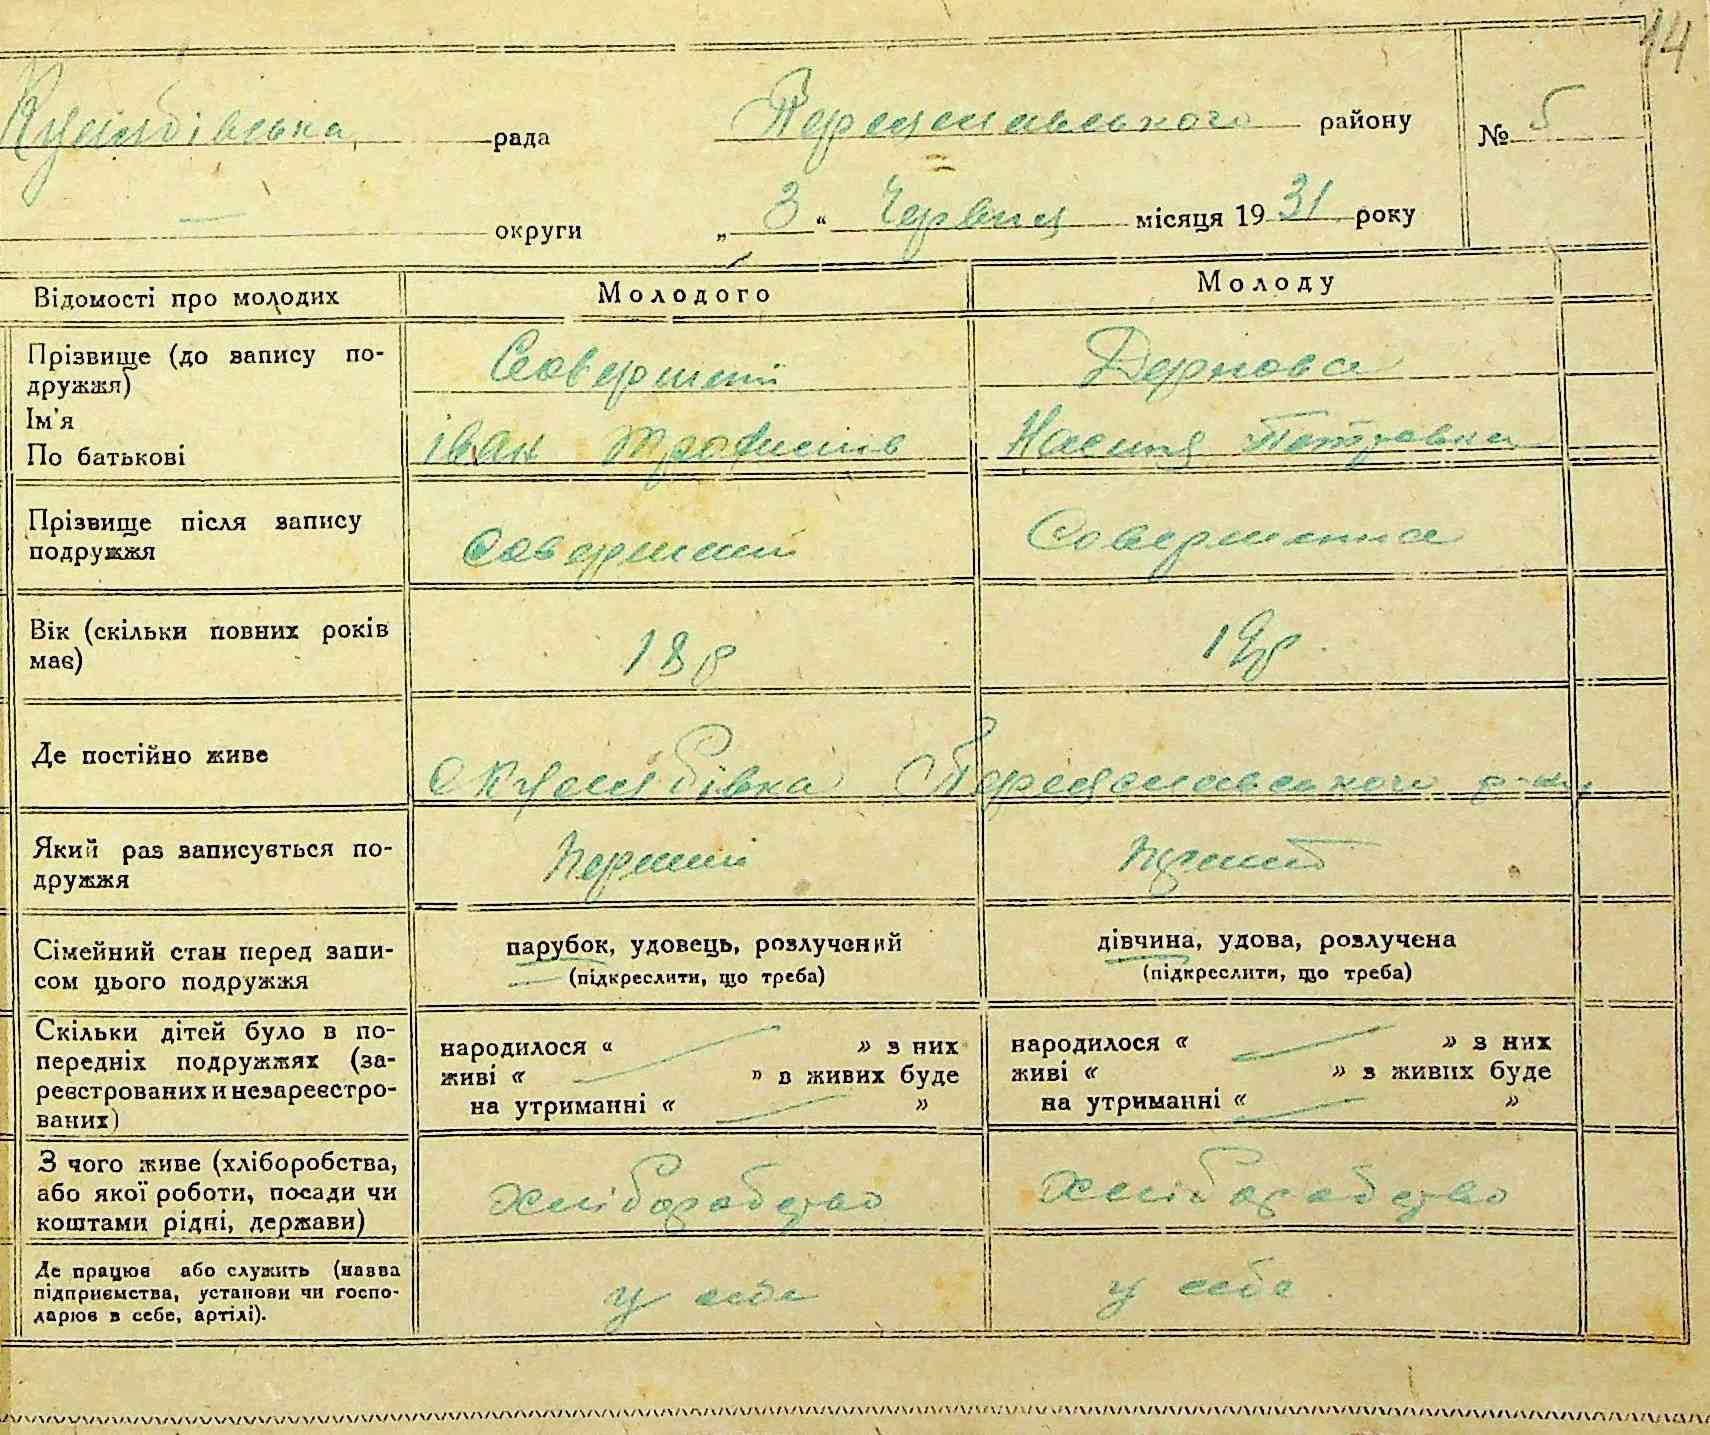 14
рада Переяславського району № 5
— округи „ 3 “ Червня місяця 19 31 року
Відомості про молодих Молодого Молоду
Прізвище (до запису по-
дружжя)
Ім'я
По батькові
Іван Трофимів Настя Петровна
Прізвище після запису
подружжя
Вік (скільки повних років
має)
18 р 19 р.
Де постійно живе
Переяславського р-ну
Який раз записується по-
дружжя
Перший
Сімейний стан перед запи-
сом цього подружжя
парубок, удовець, розлучений
(підкреслити, що треба)
дівчина, удова, розлучена
(підкреслити, що треба)
Скільки дітей було в по-
передніх подружжях (за-
реєстрованих и незареєстро-
ваних)
народилося « » з них
живі « » з живих буде
на утриманні « »
народилося « » з них
живі « » з живих буде
на утриманні « »
З чого живе (хліборобства,
або якої роботи, посади чи
коштами рідні, держави)
хліборобство хліборобство
Де працює або служить (назва
підприємства, установи чи госпо-
дарює в себе, артілі).
у себе у себе.